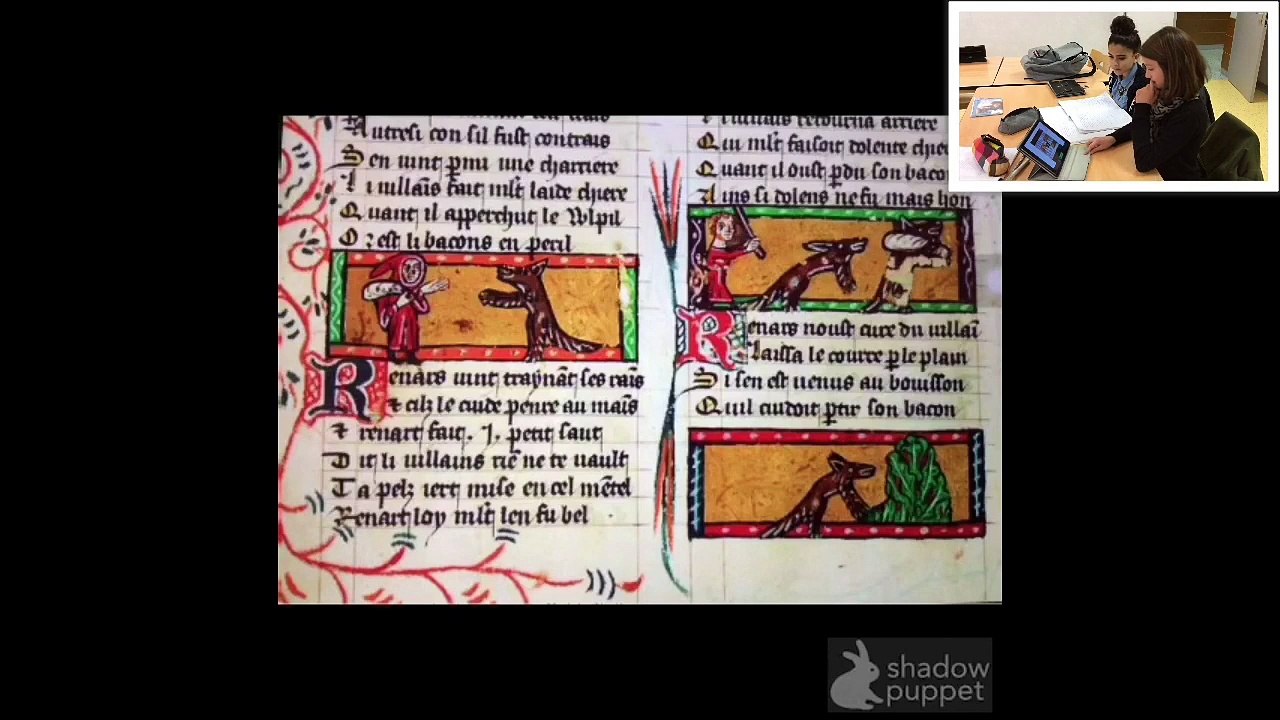 Autresi con sil fust contrais
Sen uint pmi une charriere
Li uillais fait mlt laide chiere
Quant il apperchut le Wlpil
Or est li bacons en peril
Renars uint traynāt ses rais
⁊ cilz le cuide penre au mais
⁊ renart fait .j. petit saut
Dit li uillains riē ne te uault
Ta pelz iert mise en cel mētel
Renart loy mlt len fu bel
retourna arriere
Qui mlt faisoit dolente
Quant il oust pdu son
Ains si dolens ne fu mais hon
Renars noust cure du uillaī
Laissa le courre p le plain
Si sen est uenus au bouisson
Quil cuidoit ptir son bacon
shadow
puppet